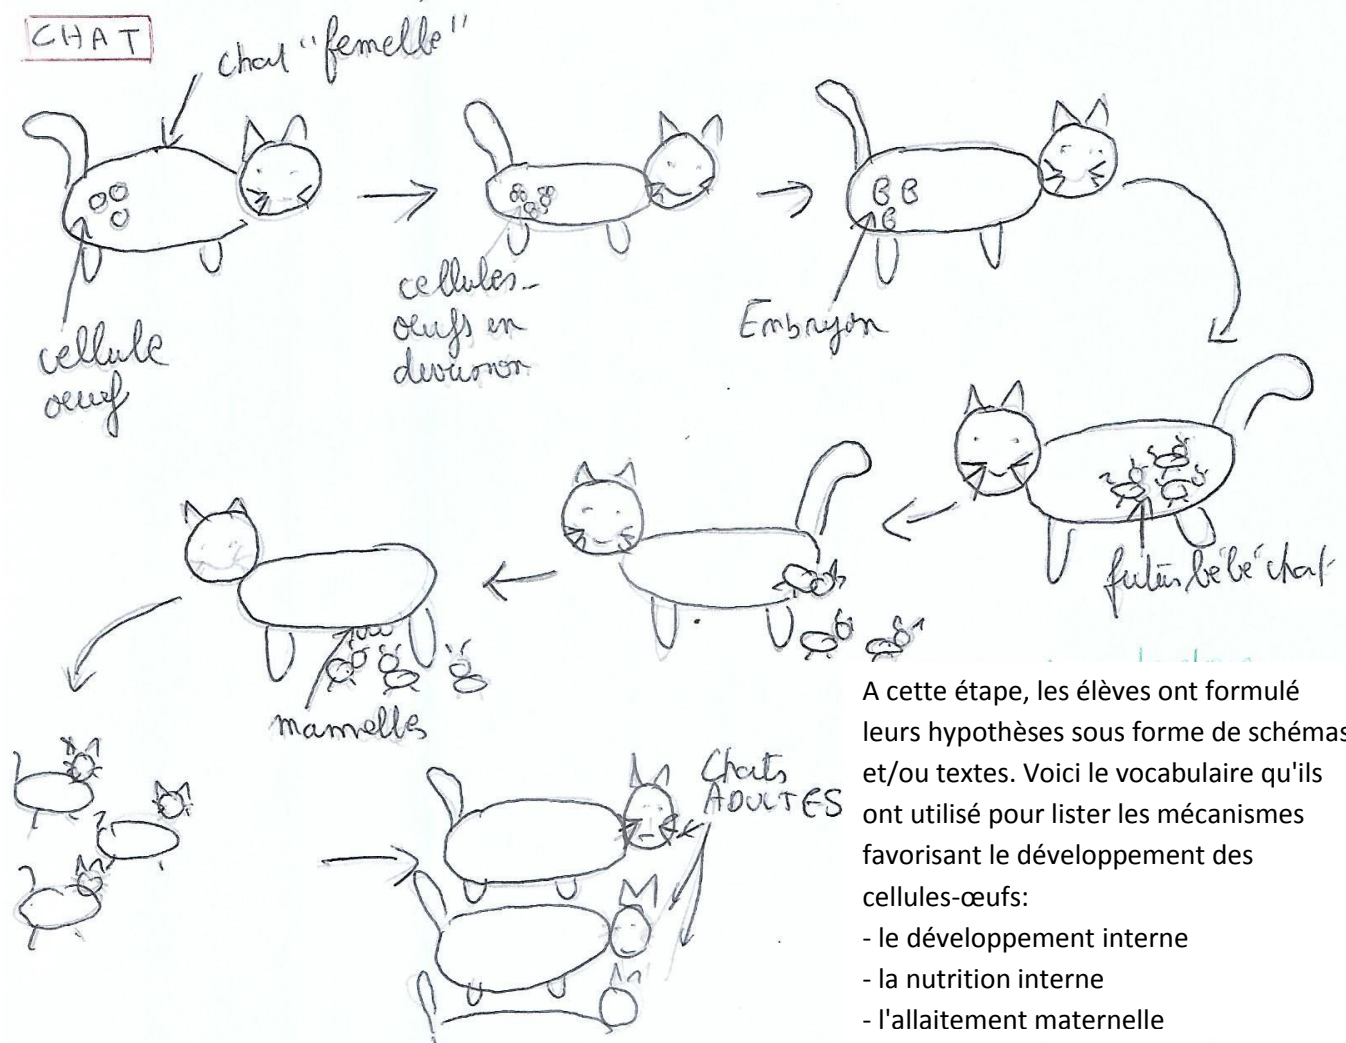 CHAT
chat "femelle"
cellule
œuf
cellules-
œufs en
division
Embryon
futurs bébé chat
mamelles
Chats
ADULTES
A cette étape, les élèves ont formulé
leurs hypothèses sous forme de schémas
et/ou textes. Voici le vocabulaire qu'ils
ont utilisé pour lister les mécanismes
favorisant le développement des
cellules-œufs:
- le développement interne
- la nutrition interne
- l'allaitement maternelle